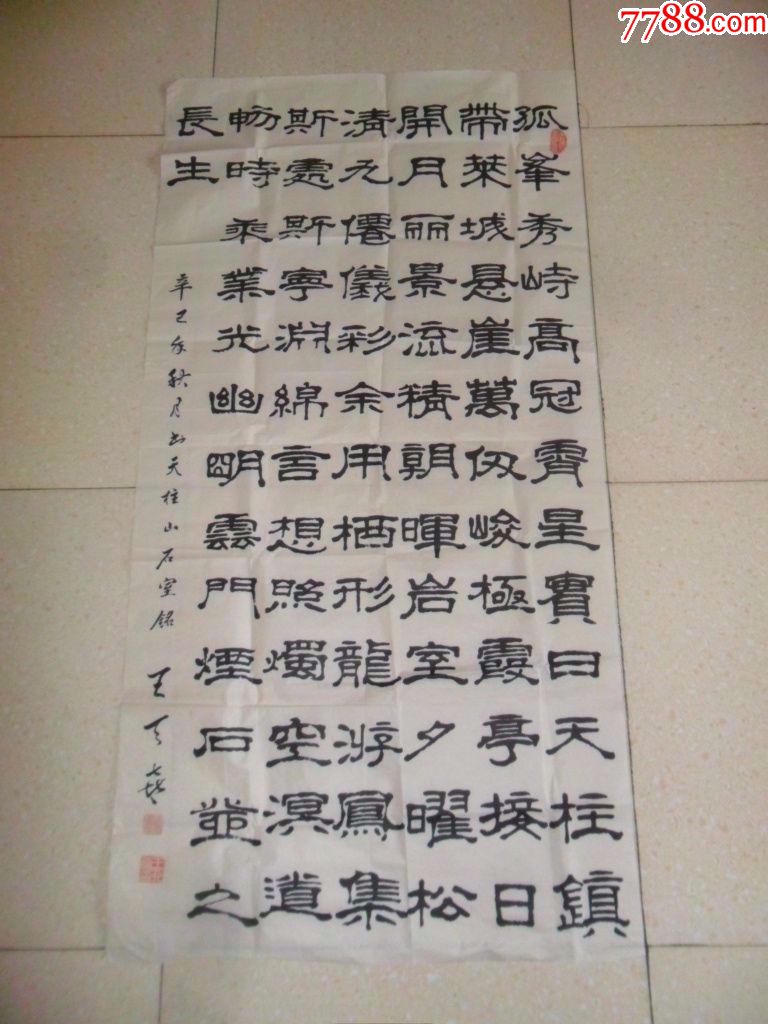 7788.com
孤峯秀峙高冠霄星實曰天柱鎮
帶萊城悬崖萬仭峻極霞亭接日
開月丽景流精朝暉岩室夕曜松
清九僊儀彩余用栖形龍游鳳集
斯處斯寧淵綿言想照燭空溟道
暢時乘業光幽明雲門煙石登之
長生
辛巳年秋月书天柱山石室銘 王天喜